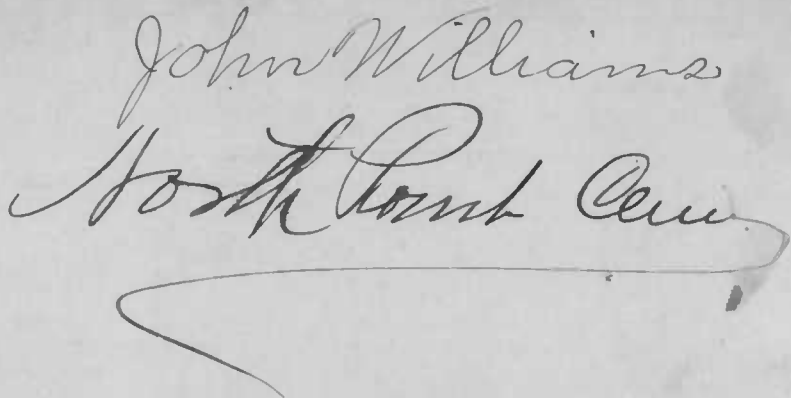 John Williams
North Point Cem